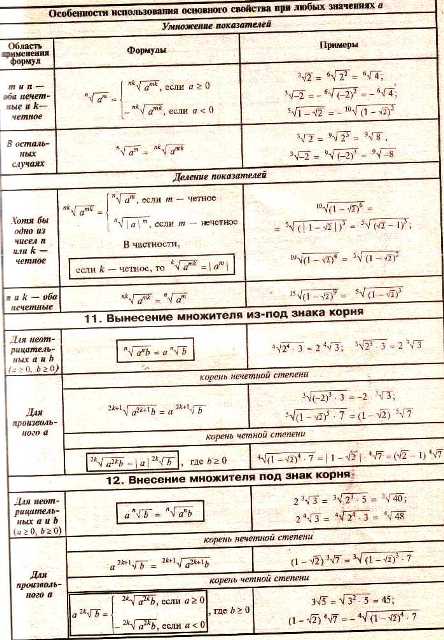 Особенности использования основного свойства при любых значениях a
Умножение показателей
Область применения формул
Формулы
Примеры
m и n — оба нечетные и k — четное
ⁿ√aᵐ = { ⁿᵏ√aᵐᵏ, если a ≥ 0
−ⁿᵏ√aᵐᵏ, если a < 0
³√2 = ⁶√2² = ⁶√4;
³√−2 = −⁶√(−2)² = −⁶√4;
⁵√1−√2 = −¹⁰√(1−√2)²
В остальных случаях
ⁿ√aᵐ = ⁿᵏ√aᵐᵏ
³√2 = ⁹√2³ = ⁹√8.
³√−2 = ⁹√(−2)³ = ⁹√−8
Деление показателей
Хотя бы одно из чисел n или k — четное
ⁿᵏ√aᵐᵏ = { ⁿ√aᵐ, если m — четное
ⁿ√|a|ᵐ, если m — нечетное
В частности,
если k — четное, то ᵏ√aᵐᵏ = |aᵐ|
= ⁵√(|1−√2|)³ = ⁵√(√2−1)³;
n и k — оба нечетные
ⁿᵏ√aᵐᵏ = ⁿ√aᵐ
11. Вынесение множителя из-под знака корня
Для неотрицательных a и b (a ≥ 0, b ≥ 0)
ⁿ√aⁿb = a ⁿ√b
⁴√2⁴ · 3 = 2 ⁴√3; ³√2³ · 3 = 2 ³√3
Для произвольного a
корень нечетной степени
²ᵏ⁺¹√a²ᵏ⁺¹b = a ²ᵏ⁺¹√b
³√(−2)³ · 3 = −2 · ³√3;
³√(1−√2)³ · 7 = (1−√2) · ³√7
корень четной степени
²ᵏ√a²ᵏb = |a| ²ᵏ√b, где b ≥ 0
⁴√(1−√2)⁴ · 7 = |1−√2| · ⁴√7 = (√2−1) ⁴√7
12. Внесение множителя под знак корня
Для неотрицательных a и b (a ≥ 0, b ≥ 0)
a ⁿ√b = ⁿ√aⁿb
2 ³√5 = ³√2³ · 5 = ³√40;
2 ⁴√3 = ⁴√2⁴ · 3 = ⁴√48
Для произвольного a
корень нечетной степени
a ²ᵏ⁺¹√b = ²ᵏ⁺¹√a²ᵏ⁺¹b
(1−√2) ³√7 = ³√(1−√2)³ · 7
корень четной степени
a ²ᵏ√b = { ²ᵏ√a²ᵏb, если a ≥ 0
−²ᵏ√a²ᵏb, если a < 0
, где b ≥ 0
3√5 = √3² · 5 = 45;
(1−√2) ⁴√7 = −⁴√(1−√2)⁴ · 7